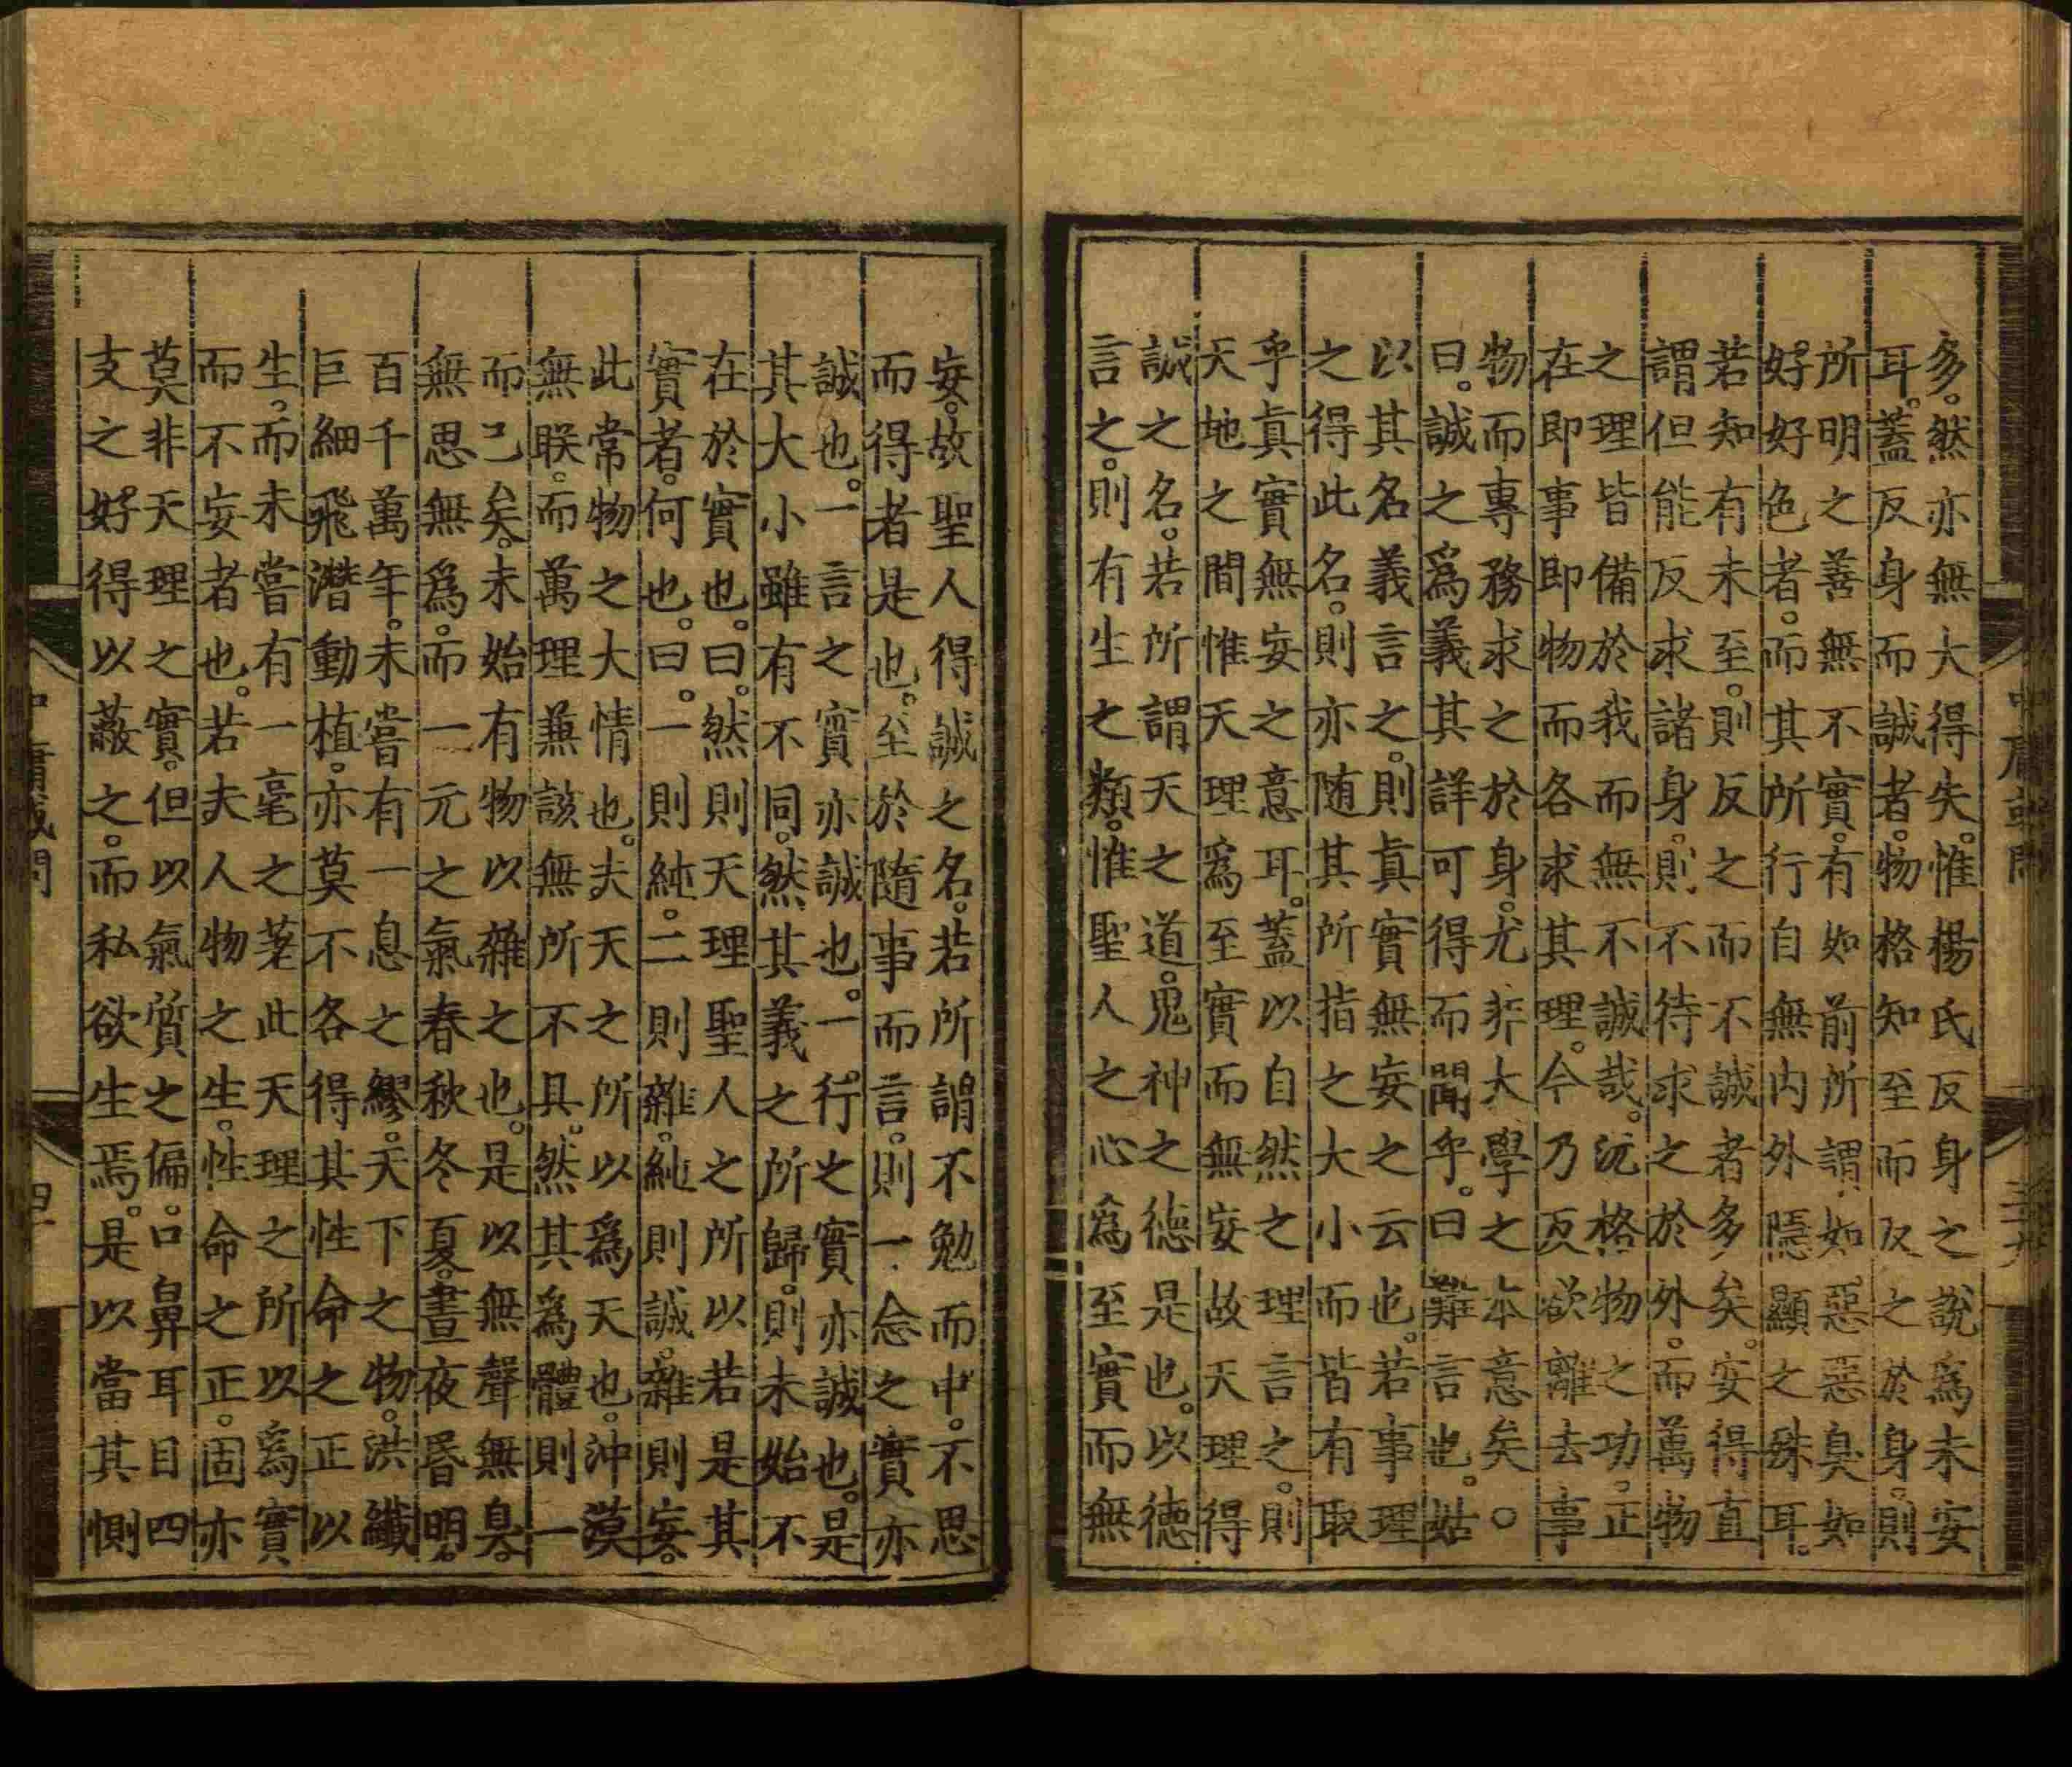 多。然亦無大得失。惟楊氏反身之說爲未安
耳。蓋反身而誠者。物格知至而反之於身。則
所明之善無不實。有如前所謂如惡惡臭如
好好色者。而其所行自無内外隱顯之殊耳。
若知有未至。則反之而不誠者多矣。安得直
謂但能反求諸身。則不待求之於外。而萬物
之理皆備於我而無不誠哉。況格物之功。正
在即事即物而各求其理。今乃反欲離去事
物而專務求之於身。尤非大學之本意矣。○
曰。誠之爲義其詳可得而聞乎。曰難言也。姑
以其名義言之。則眞實無妄之云也。若事理
之得此名。則亦随其所指之大小而皆有取
乎眞實無妄之意耳。蓋以自然之理言之。則
天地之間惟天理爲至實而無妄故天理得
誠之名。若所謂天之道。鬼神之德是也。以德
言之。則有生之類。惟聖人之心爲至實而無
妄。故聖人得誠之名。若所謂不勉而中。不思
而得者是也。至於隨事而言。則一念之實亦
誠也。一言之實亦誠也。一行之實亦誠也。是
其大小雖有不同。然其義之所歸。則未始不
在於實也。曰。然則天理聖人之所以若是其
實者。何也。曰。一則純。二則雜。純則誠。雜則妄。
此常物之大情也。夫天之所以爲天也。沖漠
無朕。而萬理兼該無所不具。然其爲體則一
而已矣。未始有物以雜之也。是以無聲無臭。
無思無爲。而一元之氣春秋冬夏。晝夜昏明。
百千萬年。未嘗有一息之繆。天下之物。洪纖
巨細飛潛動植。亦莫不各得其性命之正以
生。而未嘗有一毫之差此天理之所以爲實
而不妄者也。若夫人物之生。性命之正。固亦
莫非天理之實。但以氣質之偏。口鼻耳目四
支之好得以蔽之。而私欲生焉。是以當其惻